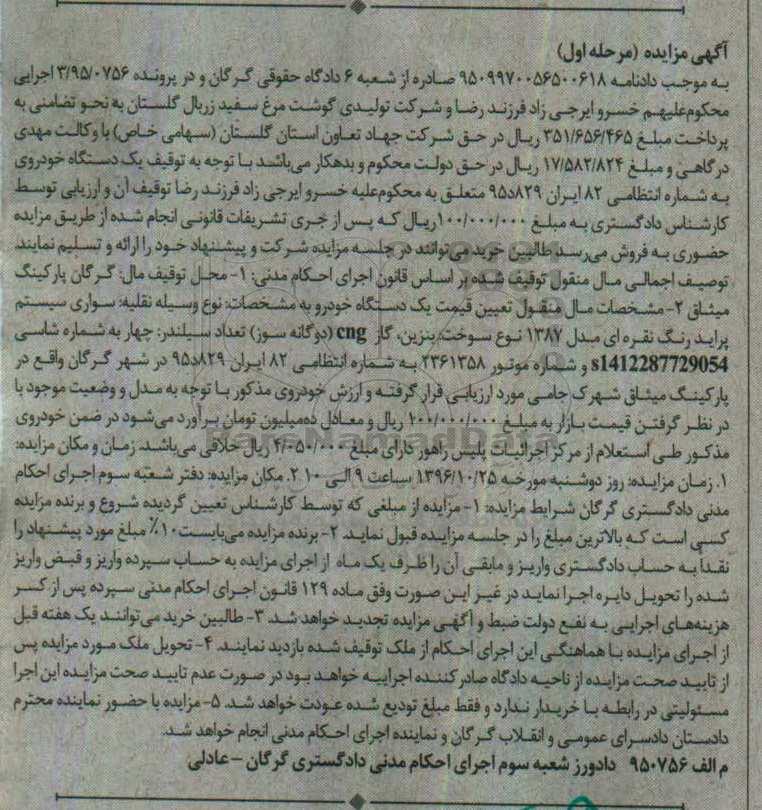 آگهی مزایده (مرحله اول)
به موجب دادنامه ۹۵۰۹۹۷۰۰۵۶۵۰۰۶۱۸ صادره از شعبه ۶ دادگاه حقوقی گرگان و در پرونده ۳/۹۵/۰۷۵۶ اجرایی
محکوم‌علیهم خسرو ایرجی زاد فرزند رضا و شرکت تولیدی گوشت مرغ سفید زربال گلستان به نحو تضامنی به
پرداخت مبلغ ۳۵۱/۶۵۶/۴۶۵ ریال در حق شرکت جهاد تعاون استان گلستان (سهامی خاص) با وکالت مهدی
درگاهی و مبلغ ۱۷/۵۸۲/۸۲۴ ریال در حق دولت محکوم و بدهکار می‌باشد با توجه به توقیف یک دستگاه خودروی
به شماره انتظامی ۸۲ ایران ۸۲۹د۹۵ متعلق به محکوم‌علیه خسرو ایرجی زاد فرزند رضا توقیف آن و ارزیابی توسط
کارشناس دادگستری به مبلغ ۱۰۰/۰۰۰/۰۰۰ریال که پس از جری تشریفات قانونی انجام شده از طریق مزایده
حضوری به فروش می‌رسد طالبین خرید می‌توانند در جلسه مزایده شرکت و پیشنهاد خود را ارائه و تسلیم نمایند
توصیف اجمالی مال منقول توقیف شده بر اساس قانون اجرای احکام مدنی: ۱- محل توقیف مال: گرگان پارکینگ
میثاق ۲- مشخصات مال منقول تعیین قیمت یک دستگاه خودرو به مشخصات: نوع وسیله نقلیه: سواری سیستم
پراید رنگ نقره ای مدل ۱۳۸۷ نوع سوخت بنزین، گاز cng (دوگانه سوز) تعداد سیلندر: چهار به شماره شاسی
s1412287729054 و شماره موتور ۲۳۶۱۳۵۸ به شماره انتظامی ۸۲ ایران ۸۲۹د۹۵ در شهر گرگان واقع در
پارکینگ میثاق شهرک جامی مورد ارزیابی قرار گرفته و ارزش خودروی مذکور با توجه به مدل و وضعیت موجود با
در نظر گرفتن قیمت بازار به مبلغ ۱۰۰/۰۰۰/۰۰۰ ریال و معادل ده‌میلیون تومان برآورد می‌شود در ضمن خودروی
مذکور طی استعلام از مرکز اجرائیات پلیس راهور دارای مبلغ ۴/۰۵۰/۰۰۰ ریال خلافی می‌باشد. زمان و مکان مزایده:
۱. زمان مزایده: روز دوشنبه مورخه ۱۳۹۶/۱۰/۲۵ ساعت ۹ الی ۱۰ ۲. مکان مزایده: دفتر شعبه سوم اجرای احکام
مدنی دادگستری گرگان شرایط مزایده: ۱- مزایده از مبلغی که توسط کارشناس تعیین گردیده شروع و برنده مزایده
کسی است که بالاترین مبلغ را در جلسه مزایده قبول نماید. ۲- برنده مزایده می‌بایست۱۰٪ مبلغ مورد پیشنهاد را
نقداً به حساب دادگستری واریز و مابقی آن را ظرف یک ماه از اجرای مزایده به حساب سپرده واریز و قبض واریز
شده را تحویل دایره اجرا نماید در غیر این صورت وفق ماده ۱۲۹ قانون اجرای احکام مدنی سپرده پس از کسر
هزینه‌های اجرایی به نفع دولت ضبط و آگهی مزایده تجدید خواهد شد. ۳- طالبین خرید می‌توانند یک هفته قبل
از اجرای مزایده با هماهنگی این اجرای احکام از ملک توقیف شده بازدید نمایند. ۴- تحویل ملک مورد مزایده پس
از تایید صحت مزایده از ناحیه دادگاه صادرکننده اجراییه خواهد بود در صورت عدم تایید صحت مزایده این اجرا
مسئولیتی در رابطه با خریدار ندارد و فقط مبلغ تودیع شده عودت خواهد شد. ۵- مزایده با حضور نماینده محترم
دادستان دادسرای عمومی و انقلاب گرگان و نماینده اجرای احکام مدنی انجام خواهد شد.
م الف ۹۵۰۷۵۶ دادورز شعبه سوم اجرای احکام مدنی دادگستری گرگان – عادلی
ParsNamadData